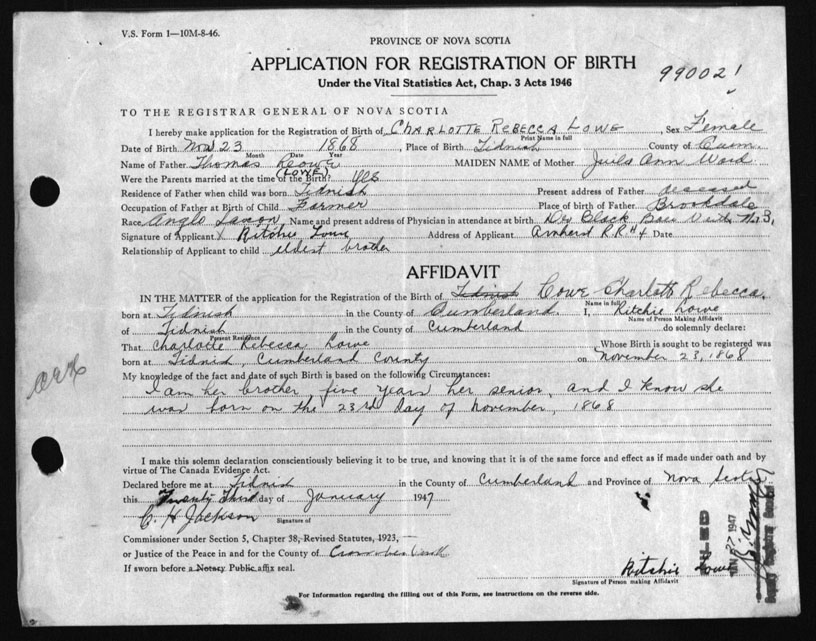 V.S. Form 1—10M-8-46.
PROVINCE OF NOVA SCOTIA
APPLICATION FOR REGISTRATION OF BIRTH
990021
Under the Vital Statistics Act, Chap. 3 Acts 1946
TO THE REGISTRAR GENERAL OF NOVA SCOTIA
I hereby make application for the Registration of Birth of CHARLOTTE REBECCA LOWE Sex Female
Print Name in full
Date of Birth Nov 23 1868, Place of Birth Tidnish County of Cum.
Month Date Year
Name of Father Thomas Lowe MAIDEN NAME of Mother Ann Ward
(LOWE)
Were the Parents married at the time of the Birth? Yes
Residence of Father when child was born Tidnish Present address of Father deseased
Occupation of Father at Birth of Child Farmer Place of birth of Father Brookdale
Race Anglo Saxon Name and present address of Physician in attendance at birth Black
Signature of Applicant Ritchie Lowe Address of Applicant Amherst R.R #4 Date
Relationship of Applicant to child eldest brother
AFFIDAVIT
IN THE MATTER of the application for the Registration of the Birth of Tidnish Lowe Charlott Rebecca
Name in full
born at Tidnish in the County of Cumberland. I, Ritchie Lowe
Name of Person Making Affidavit
of Tidnish in the County of Cumberland do solemnly declare:
Present Residence
That Charlotte Rebecca Lowe Whose Birth is sought to be registered was
born at Tidnish, Cumberland County on November 23, 1868
My knowledge of the fact and date of such Birth is based on the following Circumstances:
I am her brother, five years her senior, and I know she
was born on the 23rd day of November, 1868
I make this solemn declaration conscientiously believing it to be true, and knowing that it is of the same force and effect as if made under oath and by
virtue of The Canada Evidence Act.
Declared before me at Tidnish in the County of Cumberland and Province of Nova Scotia
this Twenty Third day of January 1947
C. H Jackson
Signature of
Commissioner under Section 5, Chapter 38, Revised Statutes, 1923,
or Justice of the Peace in and for the County of
If sworn before a Notary Public, affix seal.
Ritchie Lowe
Signature of Person making Affidavit
FILED
JAN 27 1947
Deputy Registrar General
For Information regarding the filling out of this Form, see instructions on the reverse side.